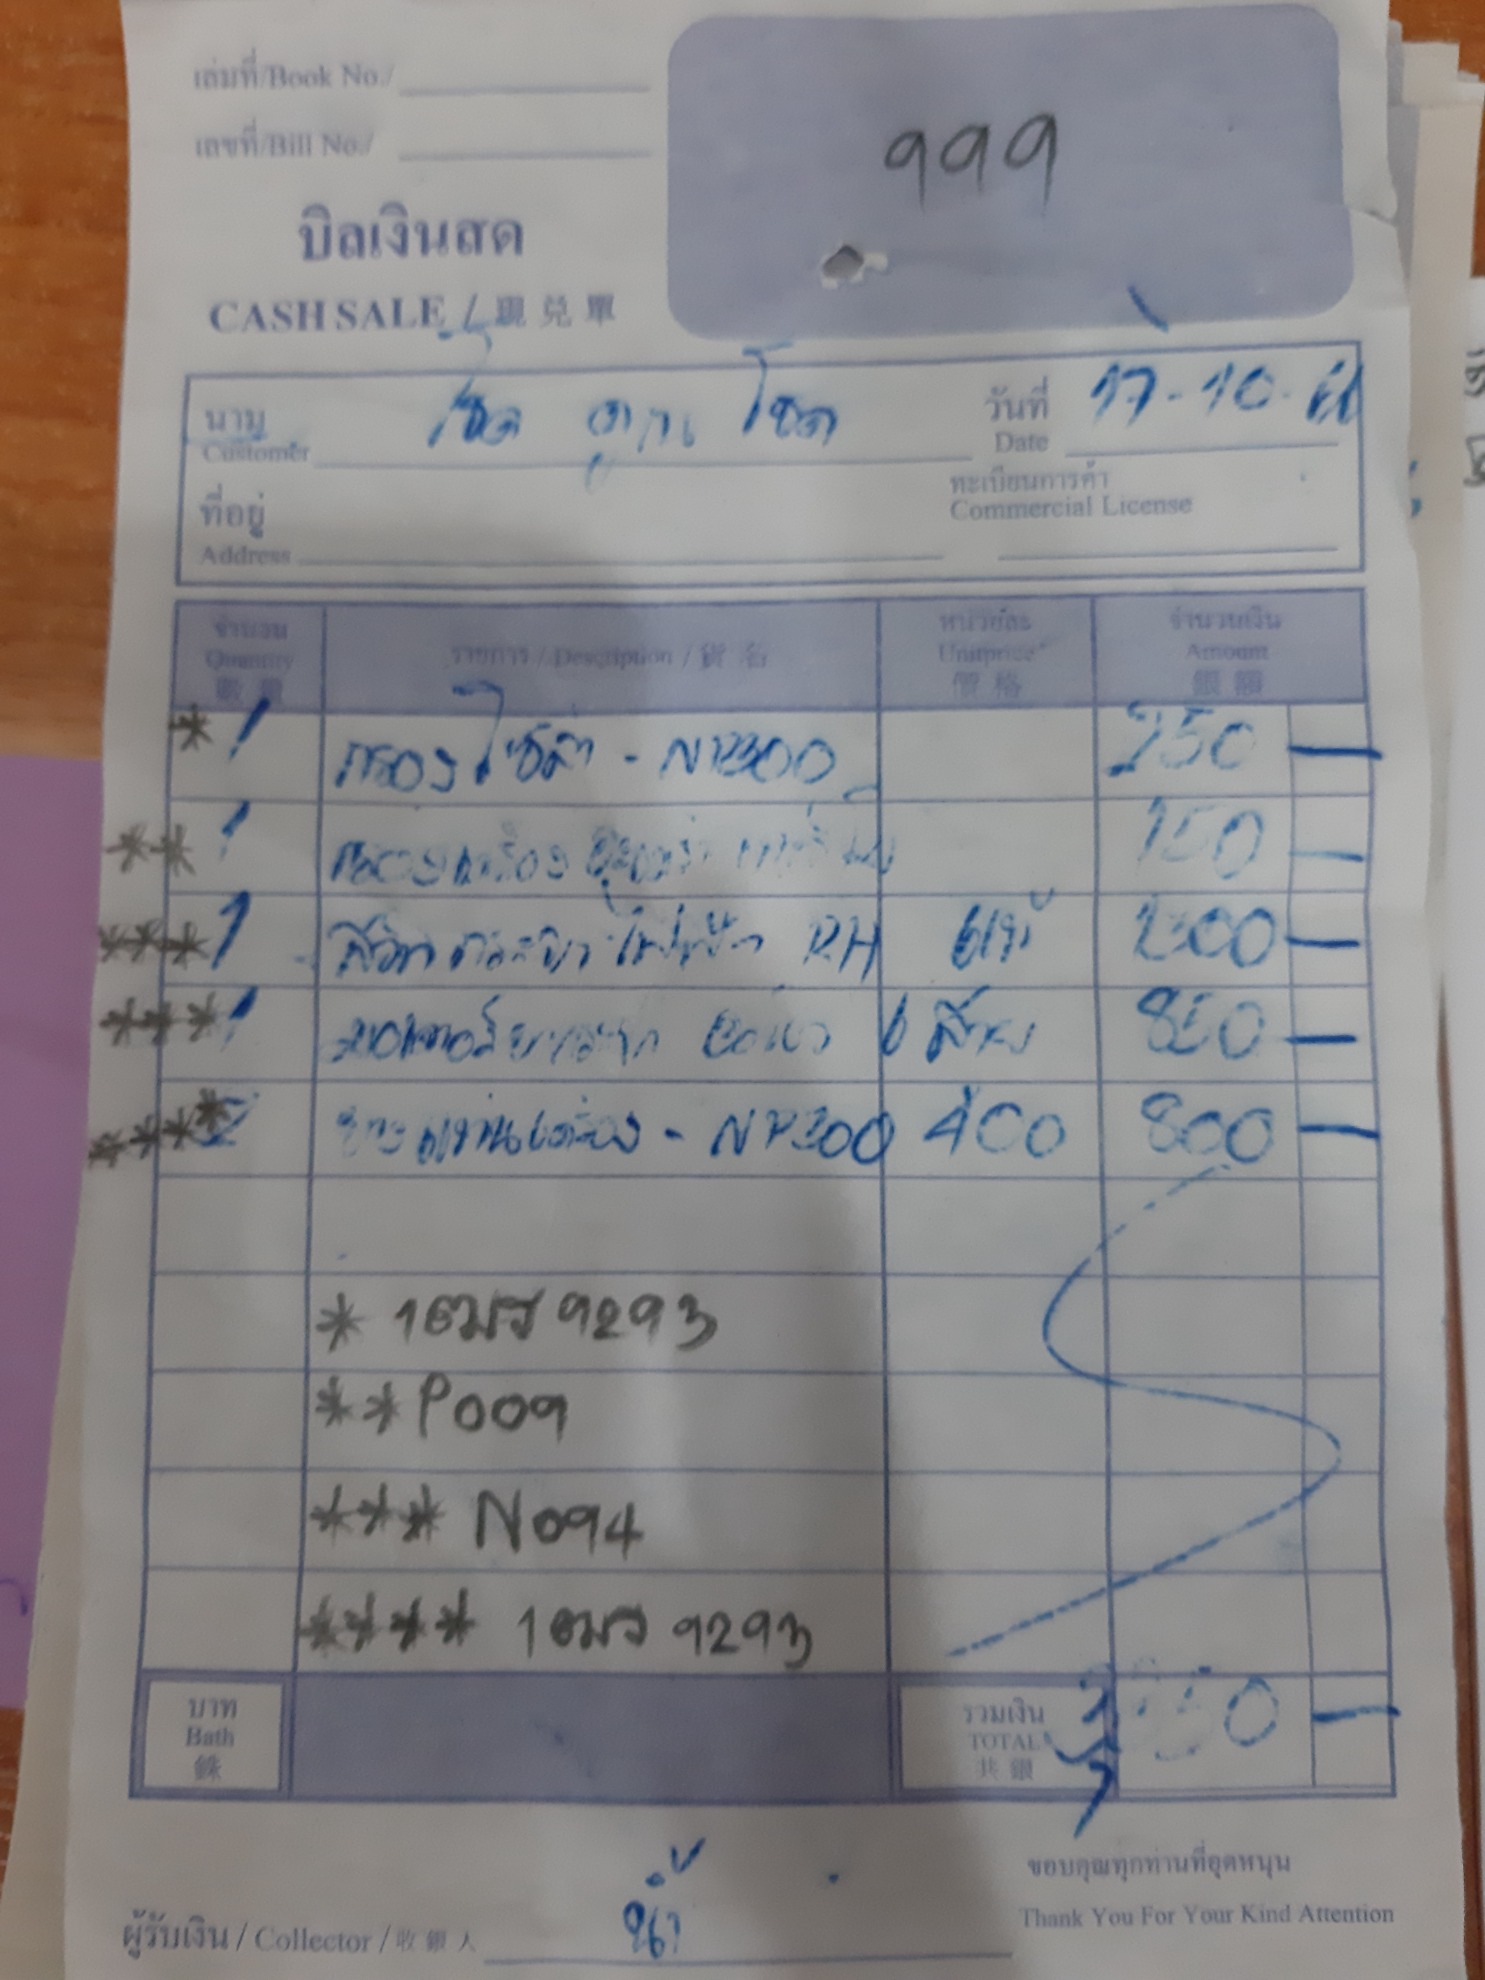 เล่มที่/Book No./
เลขที่/Bill No./
999
บิลเงินสด
CASH SALE / 現兌單
นาม
Customer
โชค คูณ โชค
วันที่
Date
17-10-
ที่อยู่
Address
ทะเบียนการค้า
Commercial License
จำนวน
Quantity
數量
รายการ / Description / 貨名
หน่วยละ
Unitprice
價格
จำนวนเงิน
Amount
銀額
* 1 กรองโซล่า - NP300 250 —
** 1 กรองเครื่อง 150 —
*** 1 สวิทกระจกไฟฟ้า RH แท้ 1300 —
*** 1 มอเตอร์ 6 สาย 850 —
**** 2 ยางแท่นเครื่อง - NP300 400 800 —
* 1ฒร 9293
** P009
*** N094
**** 1ฒร 9293
บาท
Bath
銖
รวมเงิน
TOTAL
共銀
3350 —
ขอบคุณทุกท่านที่อุดหนุน
Thank You For Your Kind Attention
ผู้รับเงิน / Collector / 收銀人